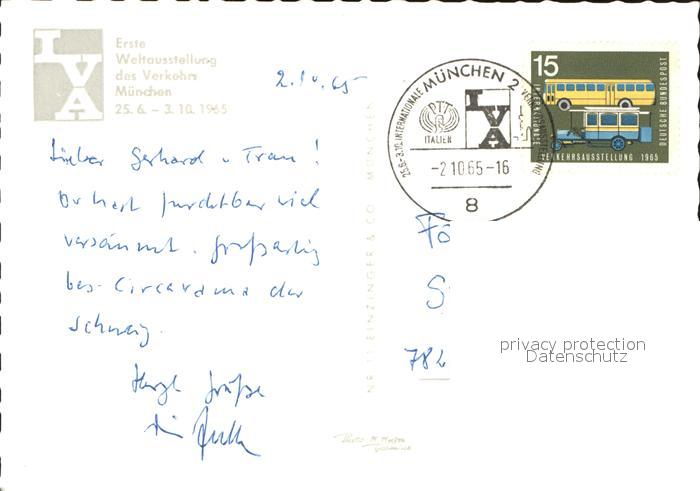 IVA
Erste
Weltausstellung
des Verkehrs
München
25.6. – 3.10. 1965
2. IV. 65
Lieber Gerhard u Frau !
Du hast furchtbar viel
versäumt. Großartig
bes. Circarama der
Schweiz.
Herzl Grüße
NR. 11 EINZINGER & CO. MÜNCHEN
MÜNCHEN 2
25.6.-3.10. INTERNATIONALE
PTT
ITALIEN
IVA
-2.10.65-16
8
15
DEUTSCHE BUNDESPOST
VERKEHRSAUSSTELLUNG 1965
Fö
S
782
privacy protection
Datenschutz